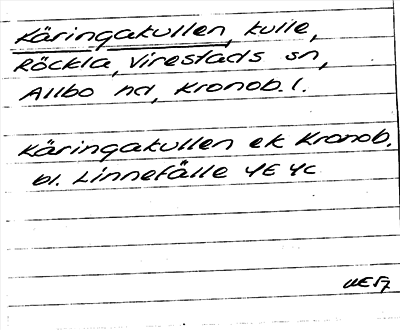 Käringakullen, kulle,
Röckla, Virestads sn,
Allbo hd, Kronob. l.
Käringakullen ek Kronob.
bl. Linnefälle 4E 4c